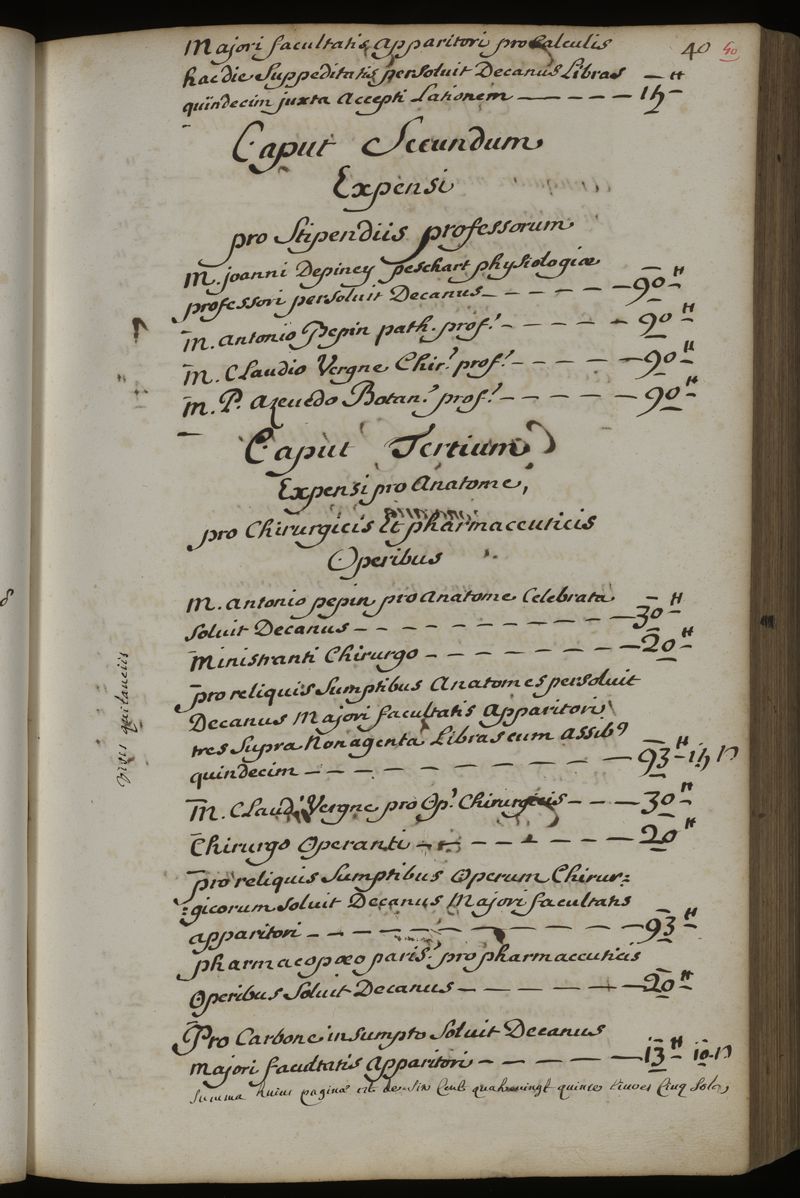 40 40
Majori facultatis apparitori pro Calculis
hac die Suppeditatis persoluit Decanus Libras
quindecim juxta accepti Lationem — — — — 15 ₶
Caput Secundum
Expensi
pro Stipendiis professorum
M. joanni Depiney peschart physiologiæ
professori persoluit Decanus — — — — — 90 ₶
M. antonio Pepin path. prof.ʳ — — — — 90 ₶
M. Claudio Vergne Chir.ᵃ prof.ʳ — — — — 90 ₶
M. P. azeuedo Botan.ᵃ prof.ʳ — — — — — 90 ₶
Caput Tertium
Expensi pro Anatome,
pro Chirurgicis Et pharmaceuticis
Operibus
M. antonio pepin pro Anatome Celebrata
soluit Decanus — — — — — — — — — 30 ₶
Ministranti Chirurgo — — — — — — — 20 ₶
pro reliquis Sumptibus Anatomes persoluit
Decanus Majori facultatis Apparitori
tres Supra Nonagenta Libras cum assib⁹
quindecim — — — — — — — — 93 ₶ 15 ſ
M. Claud.ᵒ Vergne pro Op.ᵇ Chirurgicis — — — 30 ₶
Chirurgo Operanti — — — — — — — 20 ₶
pro reliquis Sumptibus Operum Chirur:
:gicorum soluit Decanus Majori facultatis
apparitori — — — — — — — — — 93 ₶
pharmacopœo paris.ⁱ pro pharmaceuticis
Operibus Soluit Decanus — — — — — — 20 ₶
Pro Carbone insumpto Soluit Decanus
Majori facultatis Apparitori — — — — — 13 ₶ 10 ſ
Summa huius paginæ est de Six Cents quatrevingt quinze Livres Cinq Sols